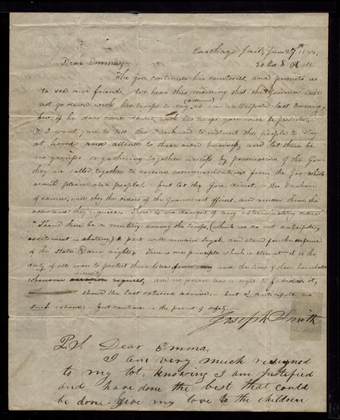 Carthage Jail, June 27th 1844.
20 Past 8 A.M.
Dear Emma,
The Gov continues his courtesies, and permits us
to see our friends. We hear this morning that the Governor
not go down with his troops to day
but if he does come down,
I want you to tell to instruct the people to stay
at home and attend to their own business, and let there be
no groups or gathering together unless by permission of the Gov
they are called together to receive communications from the Gov which
would please our people, but let the Gov. direct.
of course, will obey the orders of the government officers, and render them the
assistance they require. There is no danger of any "exterminating order"
Should there be a mutiny among the troops, (which we do not anticipate,
excitement is abating,) a part will remain loyal, and stand for the defence
of the State & our rights; There is one principle which is eternal, it is the
duty of all men to protect their lives and the lives of their households
whenever occasion requires, and no person has a right to forbid it,
should the last extreme arrive, but I anticipate no
such extreme, but caution is the parent of safety.
Joseph Smith
P.S. Dear Emma,
I am very much resigned
to my lot, knowing I am justified
and have done the best that could
be done give my love to the children